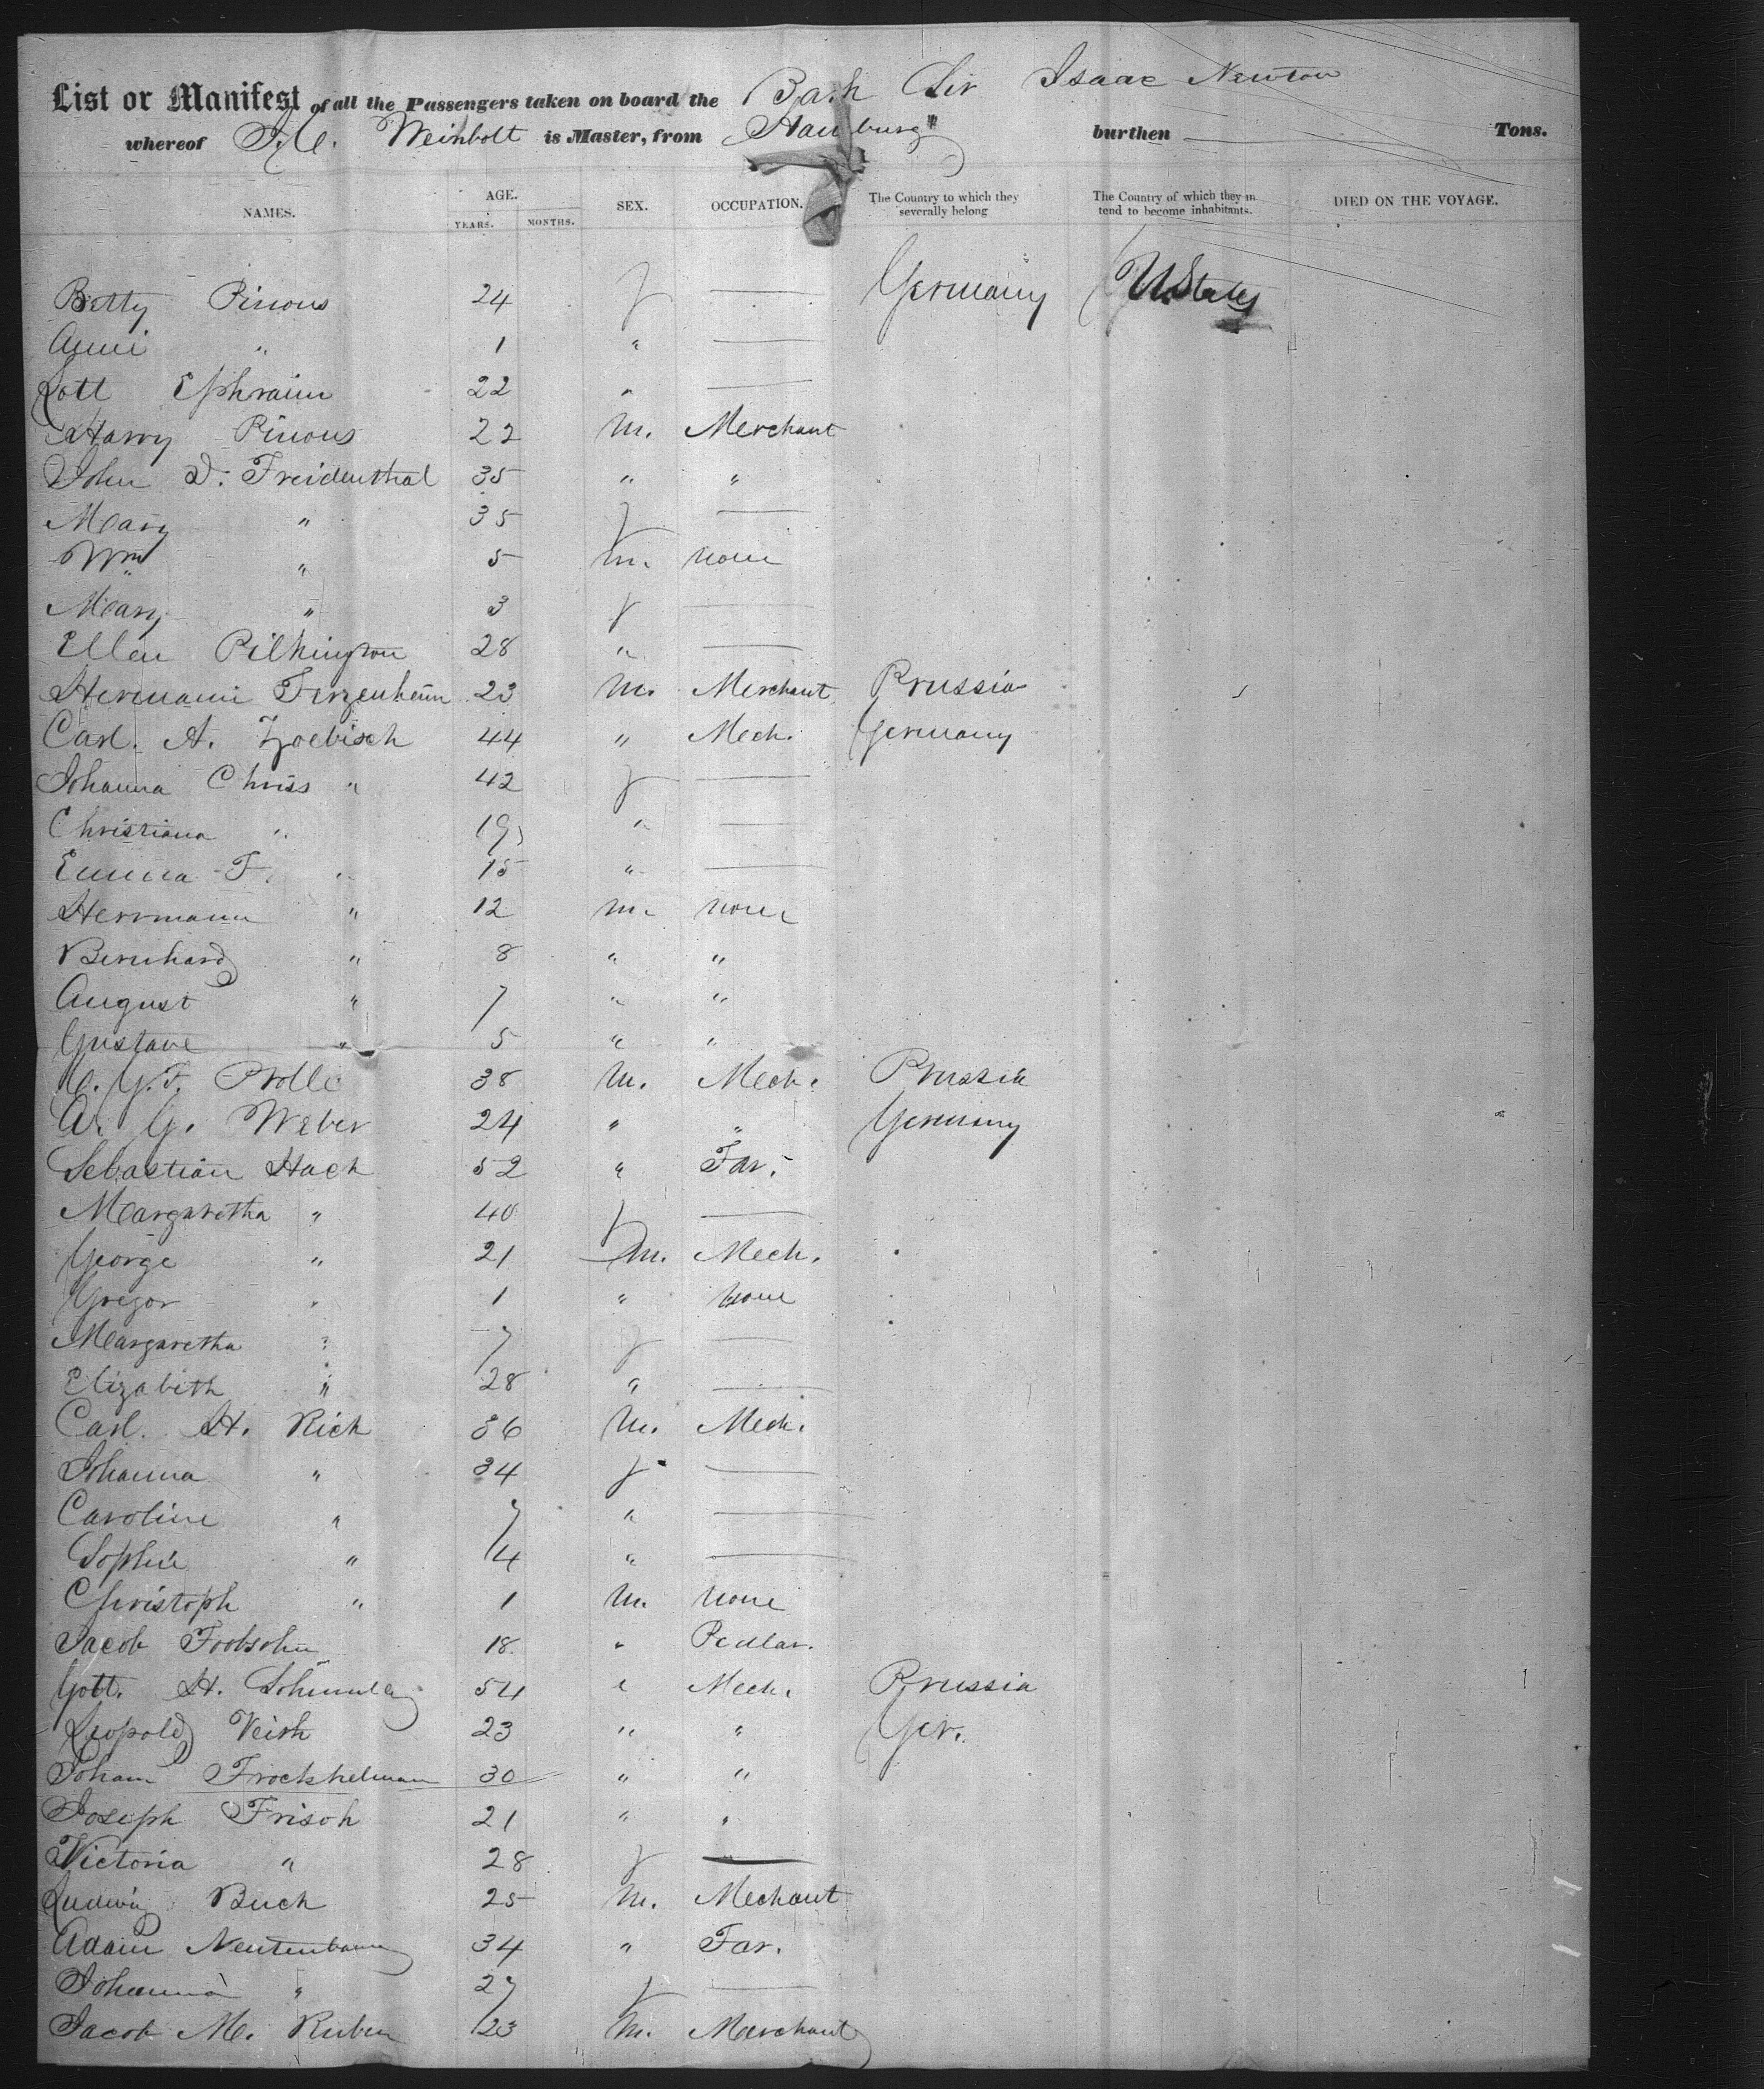 List or Manifest of all the Passengers taken on board the Bark Sir Isaac Newton
whereof Weinbolt is Master, from Hamburg burthen Tons.
NAMES. AGE. SEX. OCCUPATION. The Country to which they severally belong The Country of which they in tend to become inhabitants. DIED ON THE VOYAGE.
YEARS. MONTHS.
Betty Pinous 24 f — Germany U. States
Anni " 1 " —
Lott Ephraim 22 " —
Harry Pinous 22 M. Merchant
John D. Freidenthal 35 " "
Mary " 35 f —
Wm " 5 M. none
Mary " 3 f —
Ellen Pilkington 28 " —
Hermann 23 M. Merchant Prussia
Carl. A. Zoebisch 44 " Mech. Germany
Johanna Chriss " 42 f —
Christiana " 19 " —
Emma F. " 15 " —
Herrmann " 12 M. none
Bernhard " 8 " "
August " 7 " "
Gustave " 5 " "
G. F. Prolle 38 M. Mech. Prussia
A. G. Weber 24 " " Germany
Sebastian Hach 52 " Far.
Margaretha " 40 f —
George " 21 M. Mech.
Gregor " 1 " none
Margaretha " 7 f —
Elizabeth " 28 " —
Carl. H. Rich 36 M. Mech.
Johanna " 34 f —
Caroline " 7 " —
Sophie " 4 " —
Christoph " 1 M. none
Jacob 18 " Pedlar.
Gott. H. 54 " Mech. Prussia
Leopold Veith 23 " " Ger.
Johann 30 " "
Joseph Frisch 21 " "
Victoria " 28 f —
Ludwig Buch 25 M. Mechant
Adam 34 " Far.
Johanna " 27 f —
Jacob M. Ruben 23 M. Merchant